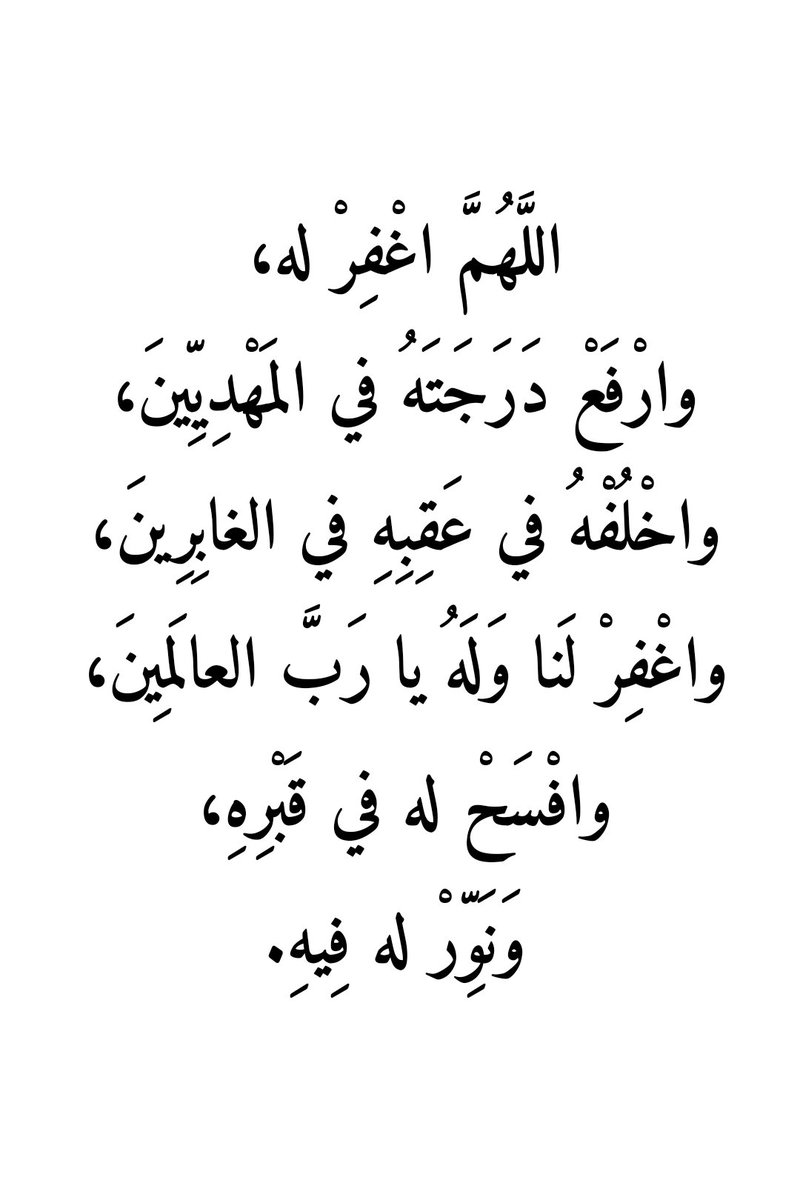 اللَّهُمَّ اغْفِرْ له،
وارْفَعْ دَرَجَتَهُ في المَهْدِيِّينَ،
واخْلُفْهُ في عَقِبِهِ في الغابِرِينَ،
واغْفِرْ لَنا وَلَهُ يا رَبَّ العالَمِينَ،
وافْسَحْ له في قَبْرِهِ،
وَنَوِّرْ له فِيهِ.